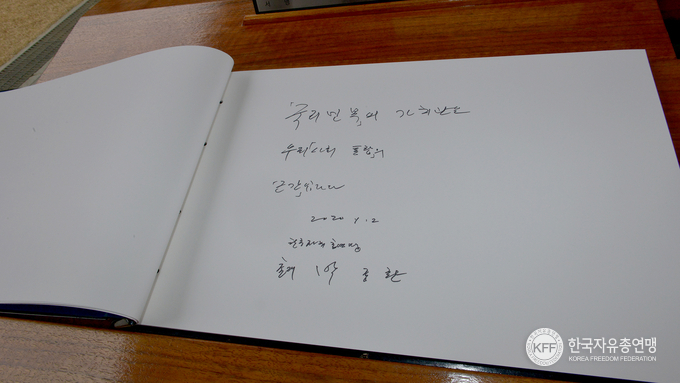 「국리민복」의 가치관은
우리「사회 통합」의
「근간」입니다
2020. 1. 2
한국자유총연맹
총재 박종환
KFF 한국자유총연맹
KOREA FREEDOM FEDERATION